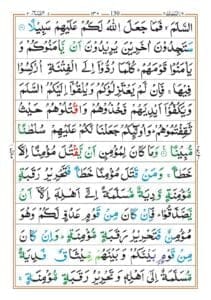 السَّلَمَ ۙ فَمَا جَعَلَ اللّٰهُ لَكُمْ عَلَيْهِمْ سَبِيْلًا
سَتَجِدُوْنَ اٰخَرِيْنَ يُرِيْدُوْنَ اَنْ يَّاْمَنُوْكُمْ وَ
يَاْمَنُوْا قَوْمَهُمْ ؕ كُلَّمَا رُدُّوْۤا اِلَى الْفِتْنَةِ اُرْكِسُوْا
فِيْهَا ۚ فَاِنْ لَّمْ يَعْتَزِلُوْكُمْ وَيُلْقُوْۤا اِلَيْكُمُ
السَّلَمَ وَيَكُفُّوْۤا اَيْدِيَهُمْ فَخُذُوْهُمْ وَاقْتُلُوْهُمْ حَيْثُ
ثَقِفْتُمُوْهُمْ ؕ وَاُولٰٓئِكُمْ جَعَلْنَا لَكُمْ عَلَيْهِمْ سُلْطٰنًا
مُّبِيْنًا وَمَا كَانَ لِمُؤْمِنٍ اَنْ يَّقْتُلَ مُؤْمِنًا اِلَّا
خَطَـًٔا ۚ وَمَنْ قَتَلَ مُؤْمِنًا خَطَـًٔا فَتَحْرِيْرُ رَقَبَةٍ
مُّؤْمِنَةٍ وَّدِيَةٌ مُّسَلَّمَةٌ اِلٰۤى اَهْلِهٖۤ اِلَّاۤ اَنْ
يَّصَّدَّقُوْا ؕ فَاِنْ كَانَ مِنْ قَوْمٍ عَدُوٍّ لَّكُمْ وَهُوَ
مُؤْمِنٌ فَتَحْرِيْرُ رَقَبَةٍ مُّؤْمِنَةٍ ؕ وَاِنْ كَانَ
مِنْ قَوْمٍۭ بَيْنَكُمْ وَبَيْنَهُمْ مِّيْثَاقٌ فَدِيَةٌ
مُّسَلَّمَةٌ اِلٰۤى اَهْلِهٖ وَتَحْرِيْرُ رَقَبَةٍ مُّؤْمِنَةٍ